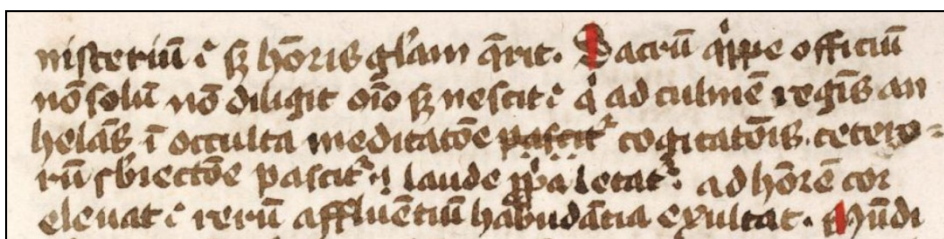 nisteriū ⁊ sꝫ hōris gl'am q̄rit. Sacrū qͥppe officiū
nō solū nō diligit oīo sꝫ nescit ⁊ qͥ ad culmē regīs an
helās ī occulta meditatōe pascit᷑ cogitatōis. cetero-
rū sbiectōe pascit᷑ ⁊ laude ꝓpͥa letat᷑. ad hōrē cor
elevat ⁊ rerū affluētiū habūdātia exultat. Mūdi